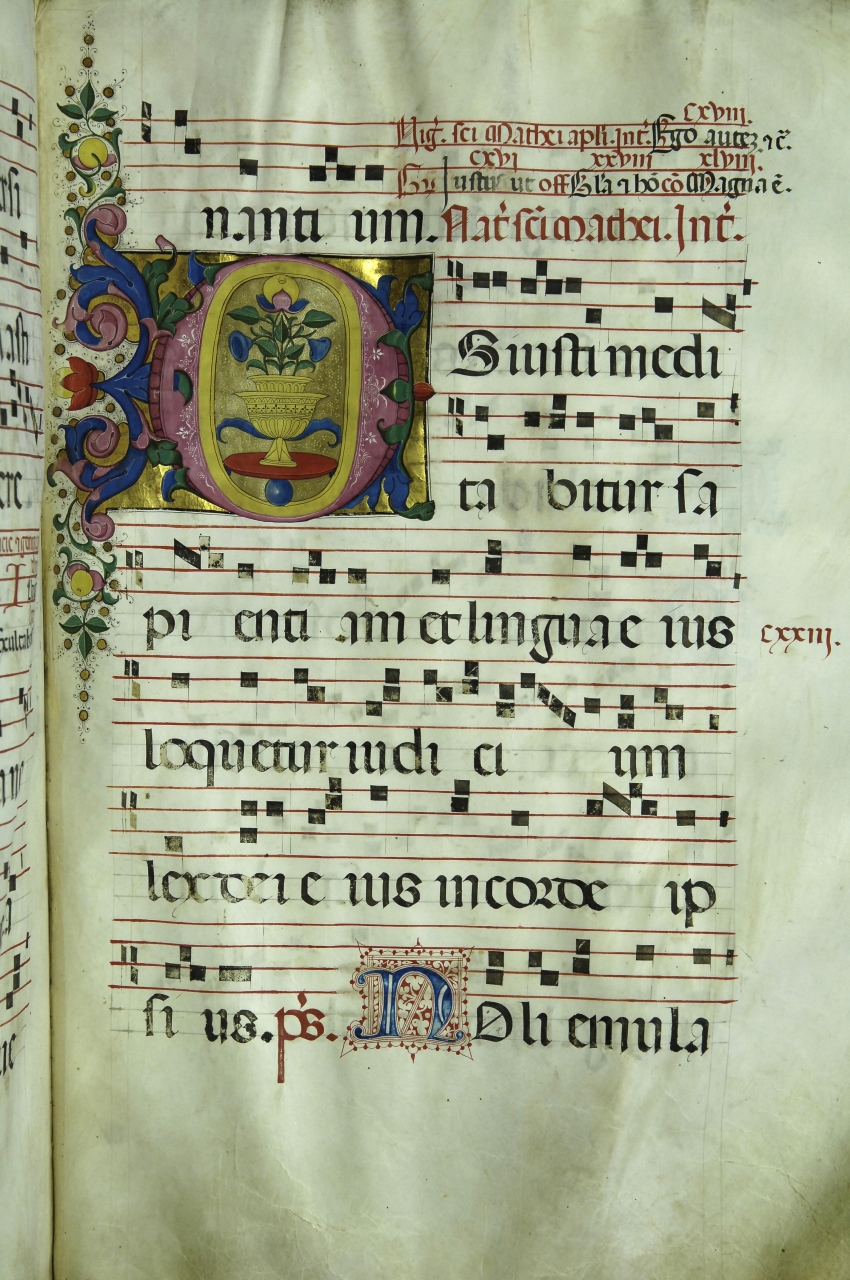 cxviii.
Uig̃. sci Mathei apli. Int̃. Ego autez ⁊ c̃.
cxvi xxviii xlviii.
Gr̃ Iustus ut off̃ Gl̃a ⁊ hõ cõ Magna ẽ.
nanti um. Nat̃ sc̃i Mathei. Int̃.
OS iusti medi
ta bitur sa
pi enti am et lingua e ius cxxiii.
loquetur iudi ci um
lex dei e ius in corde ip
si us. ps̃. NOli emula